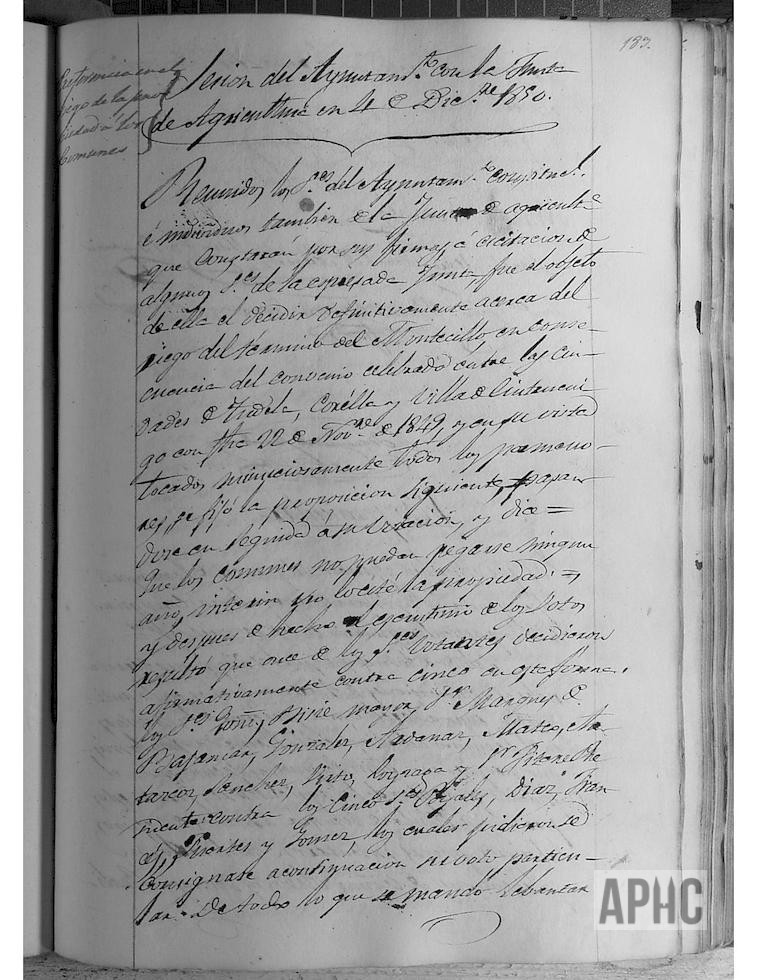 183.
Preferencia en el
riego de la pro
piedad á los
Comunes
Sesion del Ayuntam.to con la Junta
de Agricultura en 4 de Dic.re 1850.
Reunidos los S.res del Ayuntam.to
é individuos tambien de la Junta de agricult.a
que constarán por sus firmas, a excitacion de
algunos S.res de la expresada Junta, fue el objeto
de ella el decidir definitivamente acerca del
riego del termino del Montecillo, en conse-
cuencia del convenio celebrado entre las Ciu-
dades de Tudela, Corella y Villa de Cintrueni
go con fha 22 de Nov.re de 1849, y en su vista
tocados minuciosamente todos los pormeno-
res, se fijó la proposicion siguiente, pasan
dose en seguida á su votacion, y dice =
Que los comunes no puedan regarse ningun
año, interin no lo esté la propiedad =,
y despues de hecho el escrutinio de los votos
resultó que once de los S.res votantes decidieron
afirmativamente contra cinco en esta forma.
los S.res mayor, S.r Marques de
Bajamar, Gonzalez, Ardanaz, Mateo,
Sanchez, y S.r
contra los cinco S.res Diaz, Fran
y Gomez, los cuales pidieron se
consignase acontinuacion su voto particu-
lar. De todo lo que se mandó lebantar
APHC